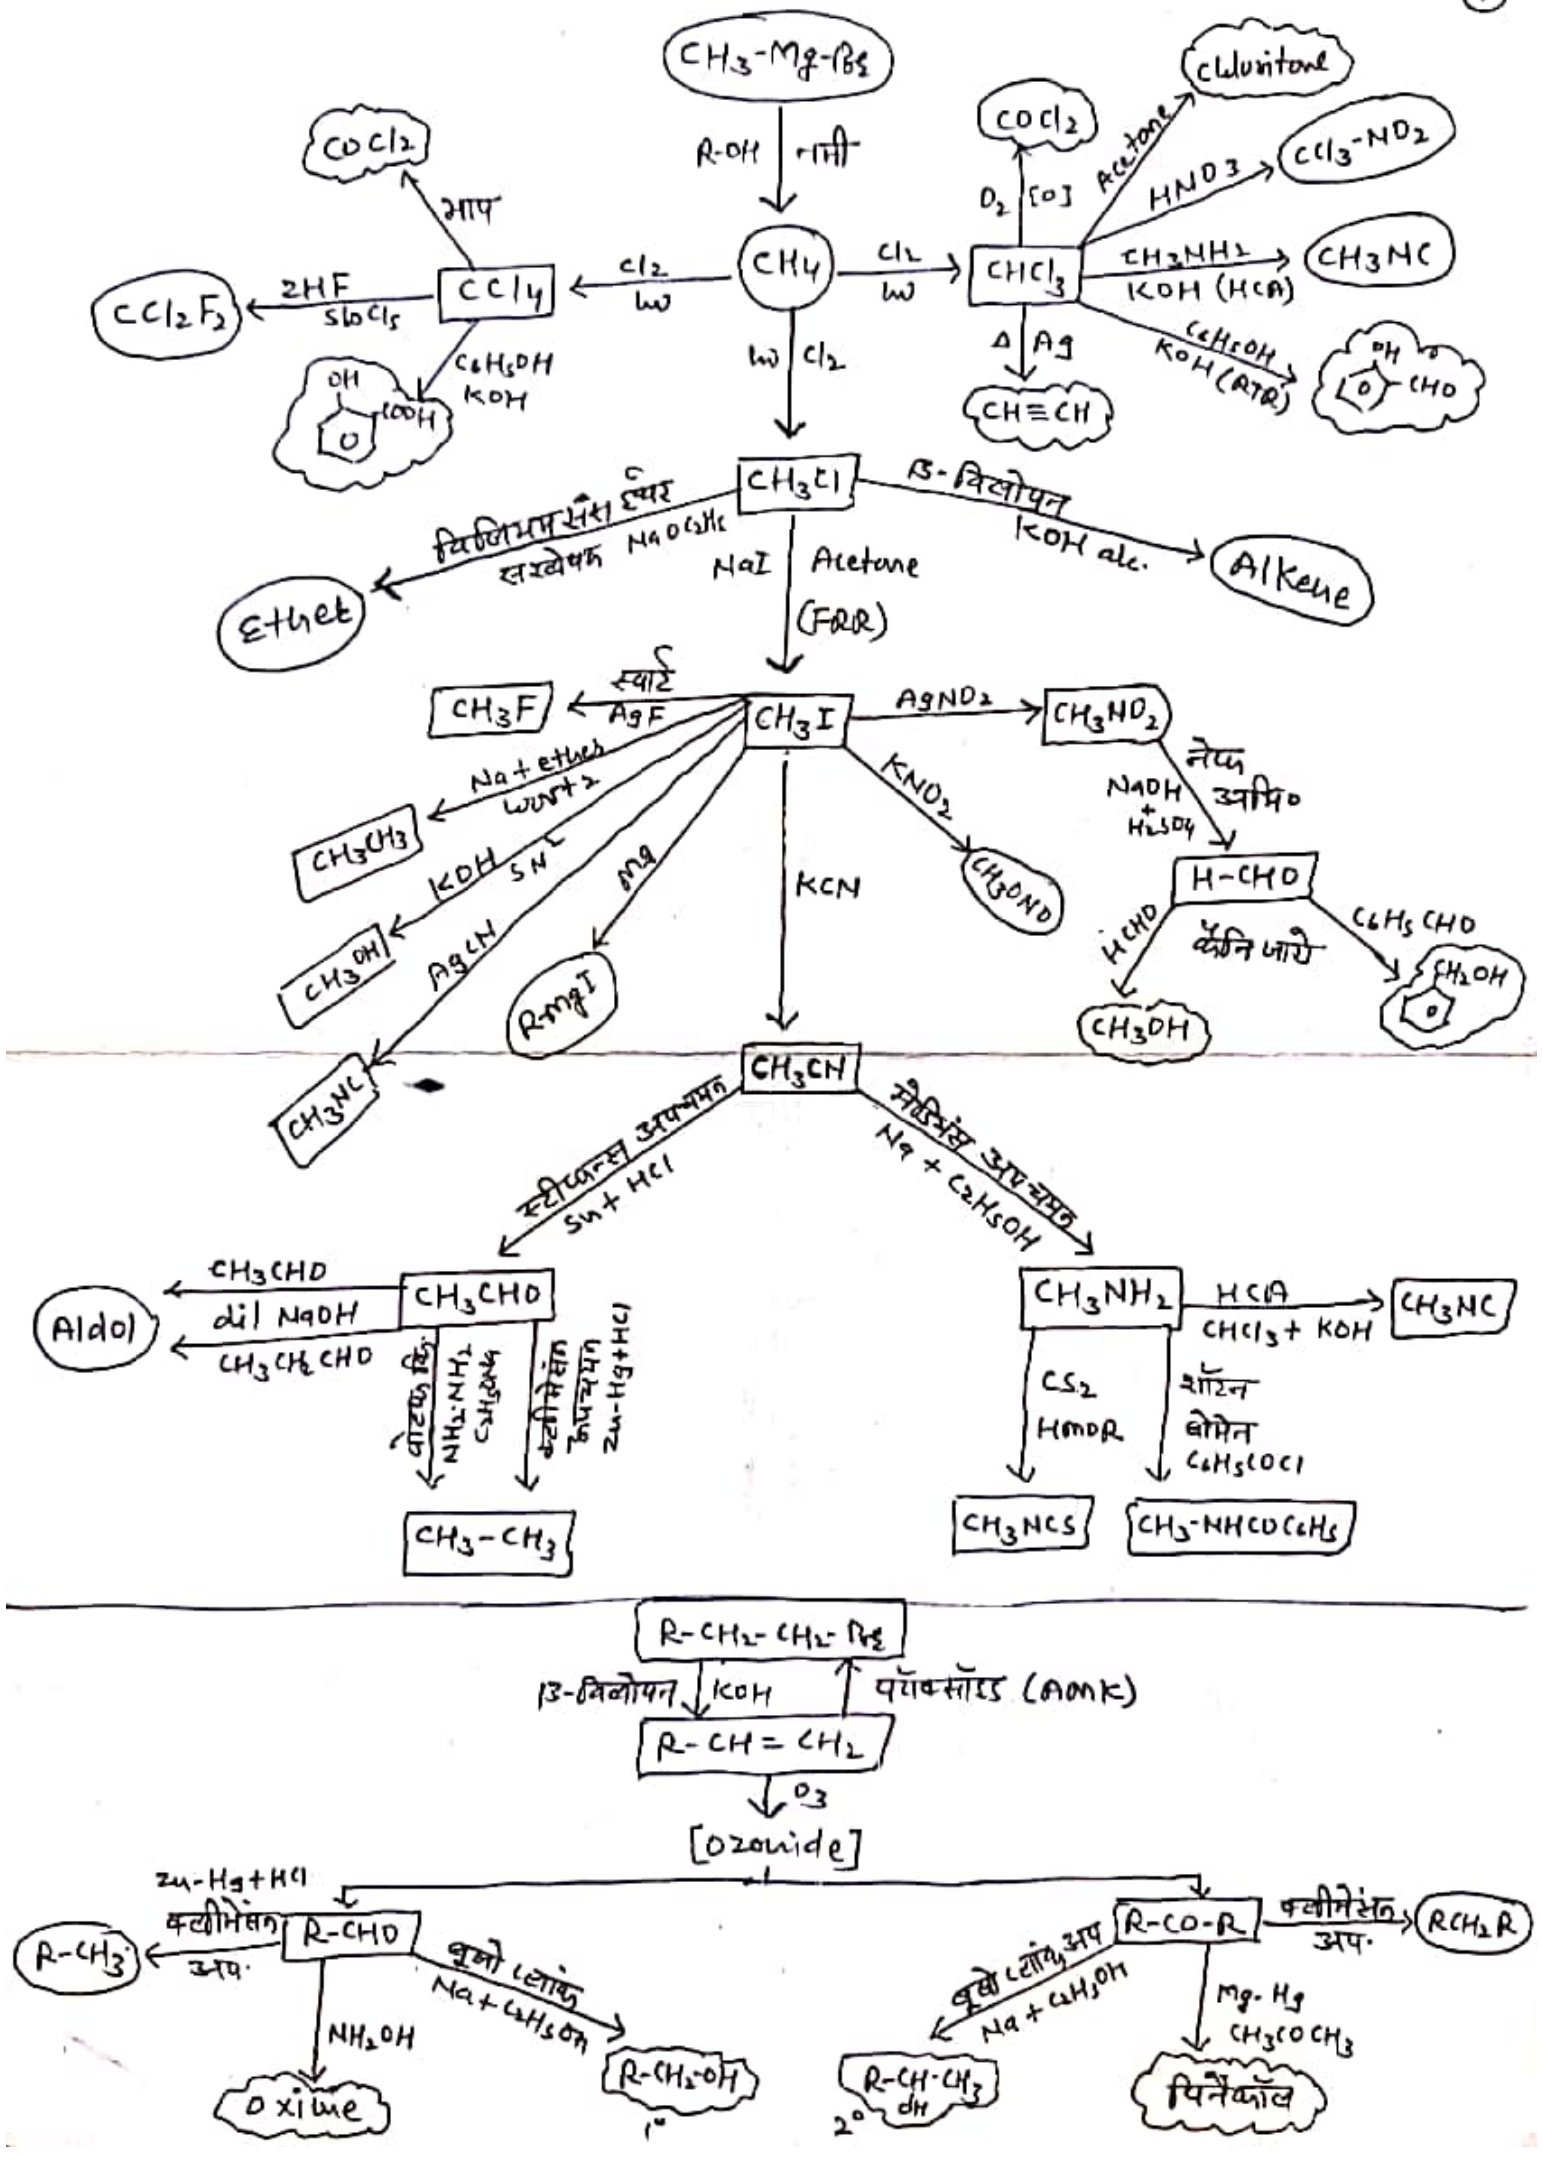 CH3-Mg-Br
R-OH नमी
CH4
Cl2 hν
CCl4
भाप
COCl2
2HF SbCl5
CCl2F2
C6H5OH KOH
OH COOH
Cl2 hν
CHCl3
O2 [O]
COCl2
Acetone
HNO3
CCl3-NO2
CH3NH2
KOH (HCA)
CH3NC
C6H5OH
KOH (RTR)
OH CHO
Δ Ag
CH≡CH
hν Cl2
CH3Cl
NaOC2H5
Ether
β-विलोपन
KOH alc.
Alkene
NaI Acetone
(FRR)
CH3I
स्वार्ट
AgF
CH3F
Na + ether
wurtz
CH3CH3
KOH SN2
CH3OH
AgCN
CH3NC
Mg
R-MgI
KCN
KNO2
CH3ONO
AgNO2
CH3NO2
नेफ अभि०
NaOH
+
H2SO4
H-CHO
HCHO
CH3OH
C6H5CHO
CH2OH
CH3CN
स्टीफन्स अपचयन
Sn + HCl
मेंडियस अपचयन
Na + C2H5OH
CH3CHO
CH3CHO
dil NaOH
CH3CH2CHO
Aldol
NH2.NH2
C2H5ONa
क्लीमेंसन
अपचयन
Zn-Hg+HCl
CH3-CH3
CH3NH2
HCA
CHCl3 + KOH
CH3NC
CS2
HMOR
CH3NCS
शॉटन
बोमेन
C6H5COCl
CH3-NHCOC6H5
R-CH2-CH2-Br
β-विलोपन KOH
(AMK)
R-CH=CH2
O3
[Ozonide]
R-CHO
Zn-Hg+HCl
क्लीमेंसन
अप.
R-CH3
NH2OH
Oxime
बूवो ब्लांक
Na + C2H5OH
R-CH2-OH
1°
R-CO-R
क्लीमेंसन
अप.
RCH2R
बूवो ब्लांक अप
Na + C2H5OH
R-CH-CH3
OH
2°
Mg-Hg
CH3COCH3
पिनैकॉल